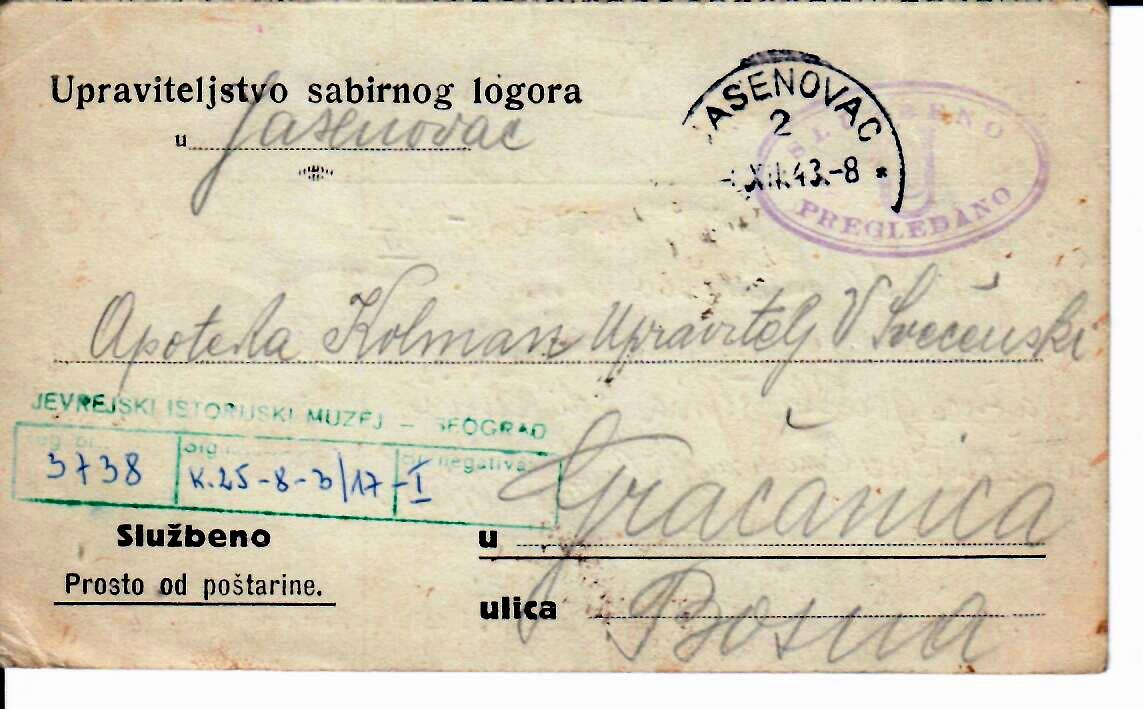 Upraviteljstvo sabirnog logora
u Jasenovac
ASENOVAC
2
XII.43.-8 *
SLUŽBENO
U
PREGLEDANO
Apoteka Kolman Upravitelj V Svećenski
JEVREJSKI ISTORIJSKI MUZEJ – BEOGRAD
Reg. br. Sign. Br. negativa:
3738 K.25-8-3/17-I
Službeno
Prosto od poštarine.
u Gračanica
ulica Bosna